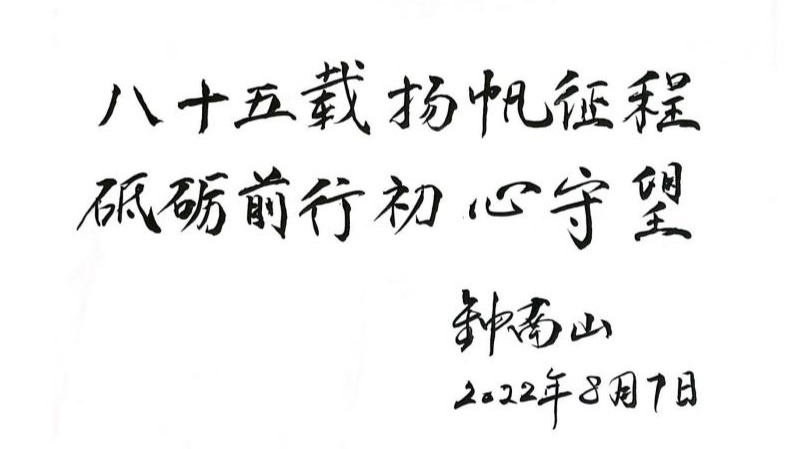 八十五载扬帆征程
砥砺前行初心守望
钟南山
2022年8月7日